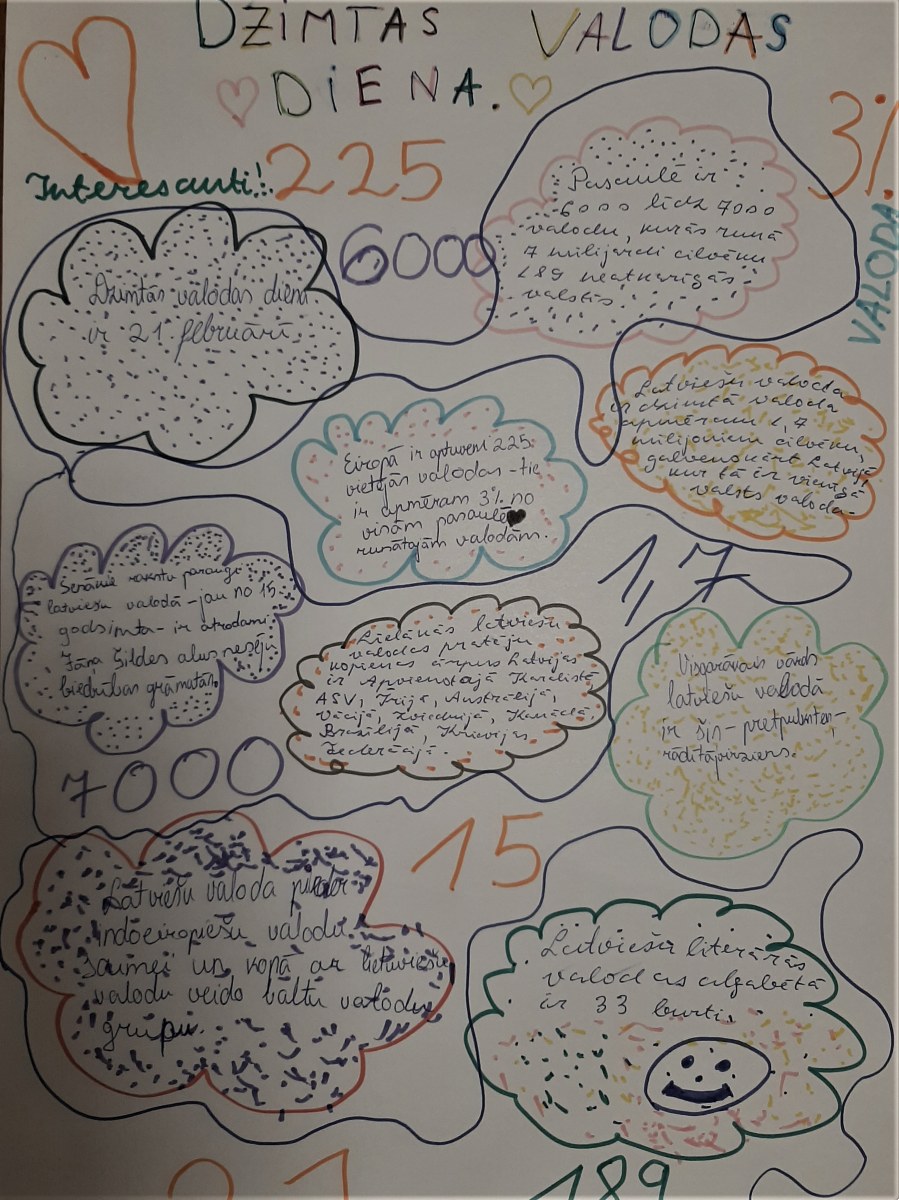 DZIMTAS VALODAS
DIENA.
3%
VALODA
Interesanti!:
225
6000
Pasaulē ir
6000 līdz 7000
valodu, kurās runā
7 miljardi cilvēku
189 neatkarīgās
valstīs.
Dzimtās valodas diena
ir 21 februārī.
Latviešu valoda
ir dzimtā valoda
apmēram 1,7
miljoniem cilvēku,
galvenokārt Latvijā,
kur tā ir vienīgā
valsts valoda.
Eiropā ir aptuveni 225
vietējās valodas - tie
ir apmēram 3% no
visām pasaulē
runātajām valodām.
1,7
Senākie rakstu paraugi
latviešu valodā - jau no 15.
godsimta - ir atrodami
Jāņa Šildes alus nesēju
biedrības grāmatās.
Lielākās latviešu
valodas pratēju
kopienas ārpus Latvijas
ir Apvienotajā Karalistē
ASV, Īrijā, Austrālijā,
Vācijā, Zviedrijā, Kanādā,
Brazīlijā, Krievijas
Federācijā.
Visgarākais vārds
latviešu valodā
ir šis - pretpulksten-
rādītājvirziens.
7000
15
Latviešu valoda pieder
indoeiropiešu valodu
saimei un kopā ar lietuviešu
valodu veido baltu valodu
grupu.
Latviešu literārās
valodas alfabētā
ir 33 burti.
21
189